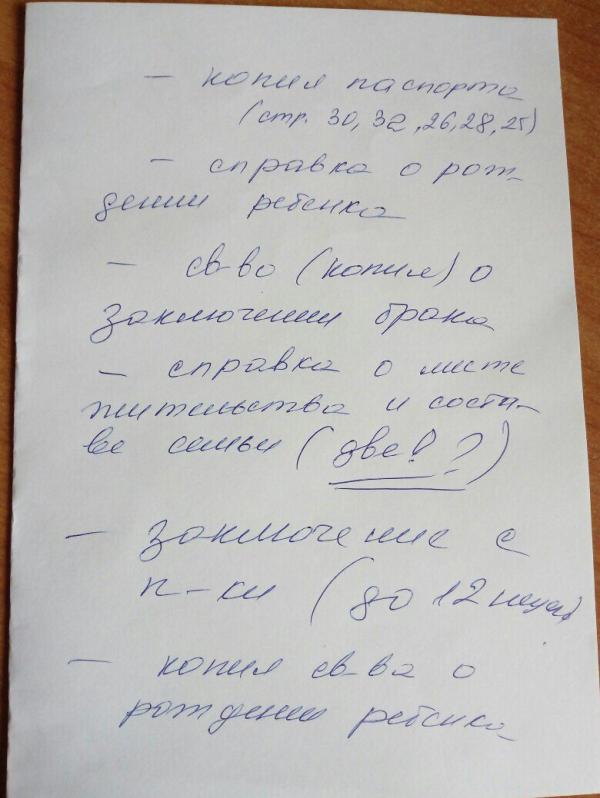 — копия паспорта
(стр. 30, 32, 26, 28, 25)
— справка о рож-
дении ребенка
— св-во (копия) о
заключении брака
— справка о месте
жительства и соста-
ве семьи (две! ?)
— заключение с
п-ки (до 12 недель)
— копия св-ва о
рождении ребенка